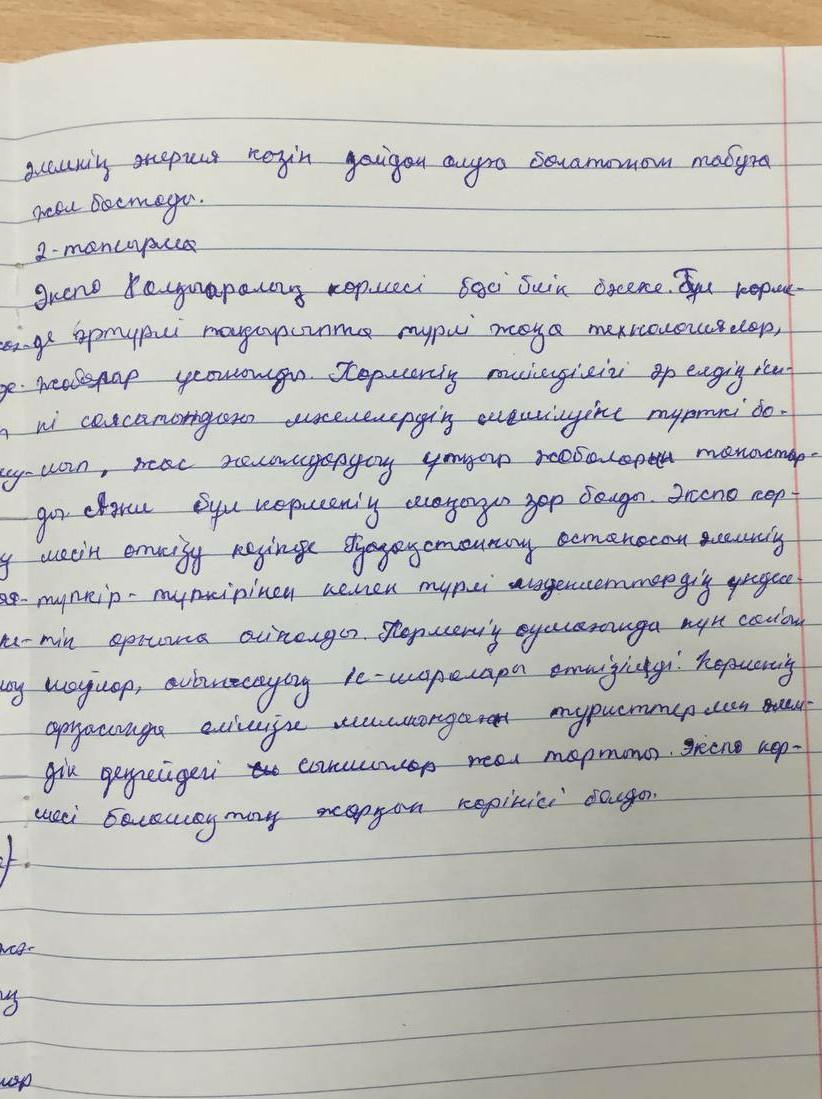 әлемнің энергия көзін қайдан алуға болатынын табуға
жол бастады.
2-тапсырма
Экспо Халықаралық көрмесі бәсі биік бәйге. Бұл көрме-
де әртүрлі тақырыпта түрлі жаңа технологиялар,
жобалар ұсынылды. Көрменің тиімділігі әр елдің ішкі
саясатындағы мәселелердің шешілуіне түрткі бо-
лып, жас ғалымдардың ұтқыр жобаларын таныстыр-
ды. Яғни бұл көрменің маңызы зор болды. Экспо көр-
месін өткізу кезінде Қазақстанның астанасын әлемнің
түпкір-түпкірінен келген түрлі мәдениеттердің үндес-
тік орнына айналды. Көрменің аумағында күн сайын
шоулар, ойын-сауық іс-шаралары өткізілді. Көрменің
арқасында елімізге миллиондаған туристтер мен әлем-
дік деңгейдегі сыншылар жол тартты. Экспо көр-
месі болашақтың жарқын көрінісі болды.